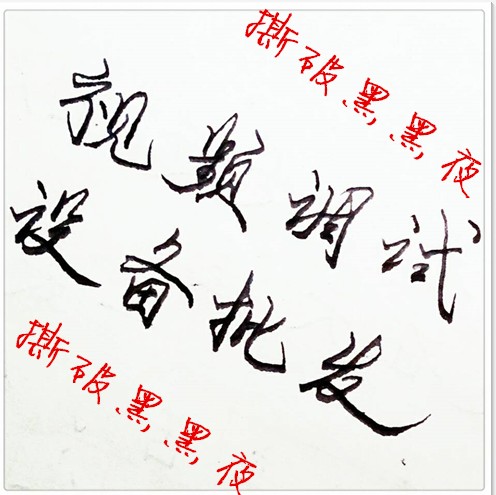 撕破黑,黑,夜
视频调试
设备批发
撕破黑,黑,夜